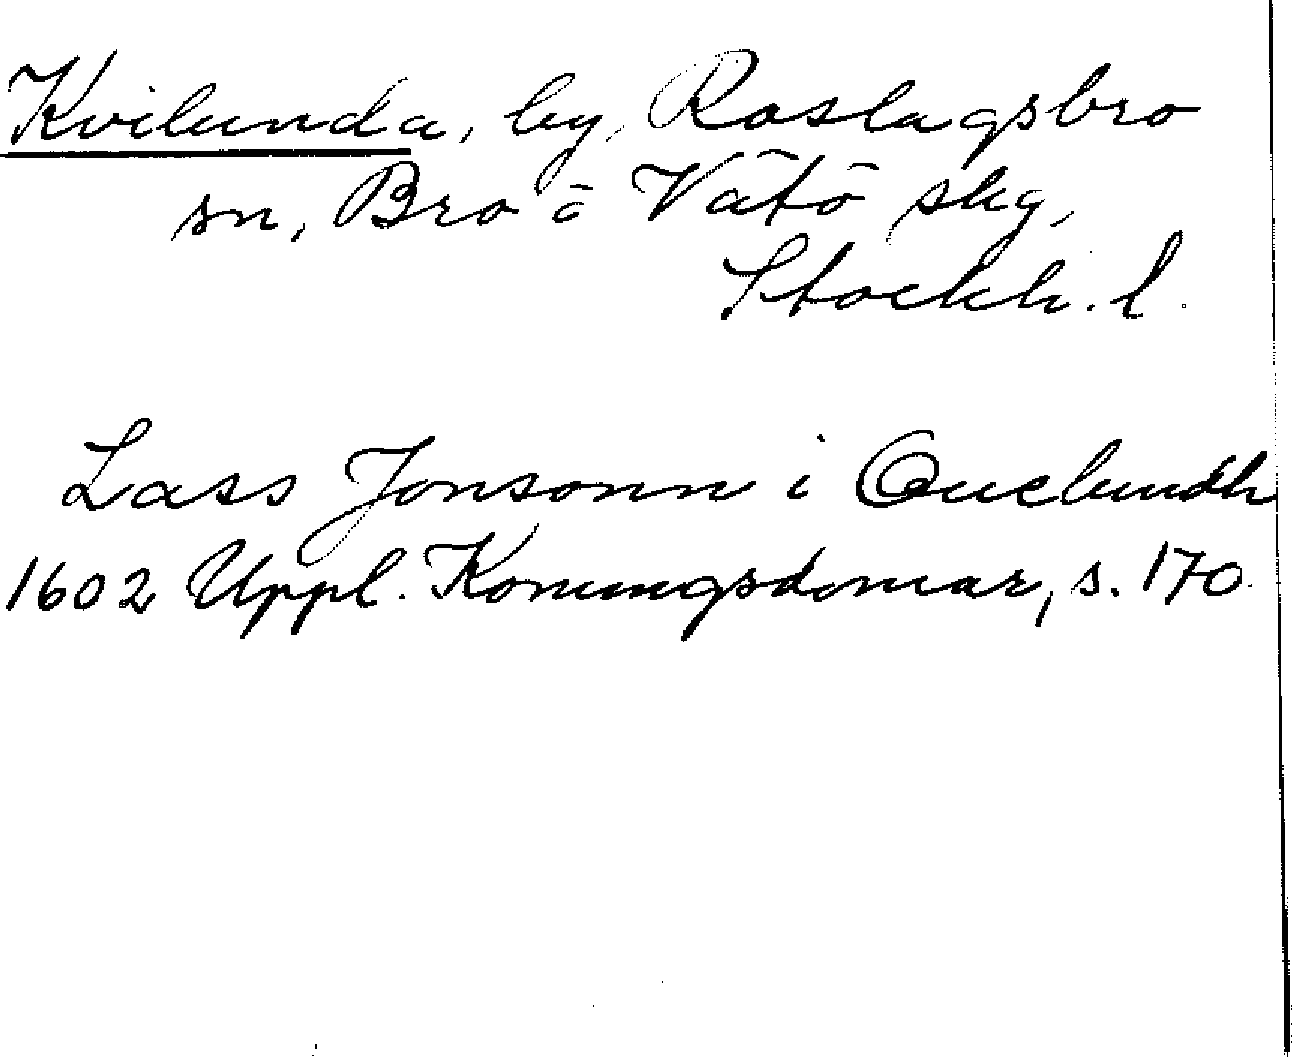 Kvilunda, by, Roslagsbro
sn, Bro o Vätö skg,
Stockh. l.
Lass Jonsonn i Quelundh
1602 Uppl. Konungsdomar, s. 170.